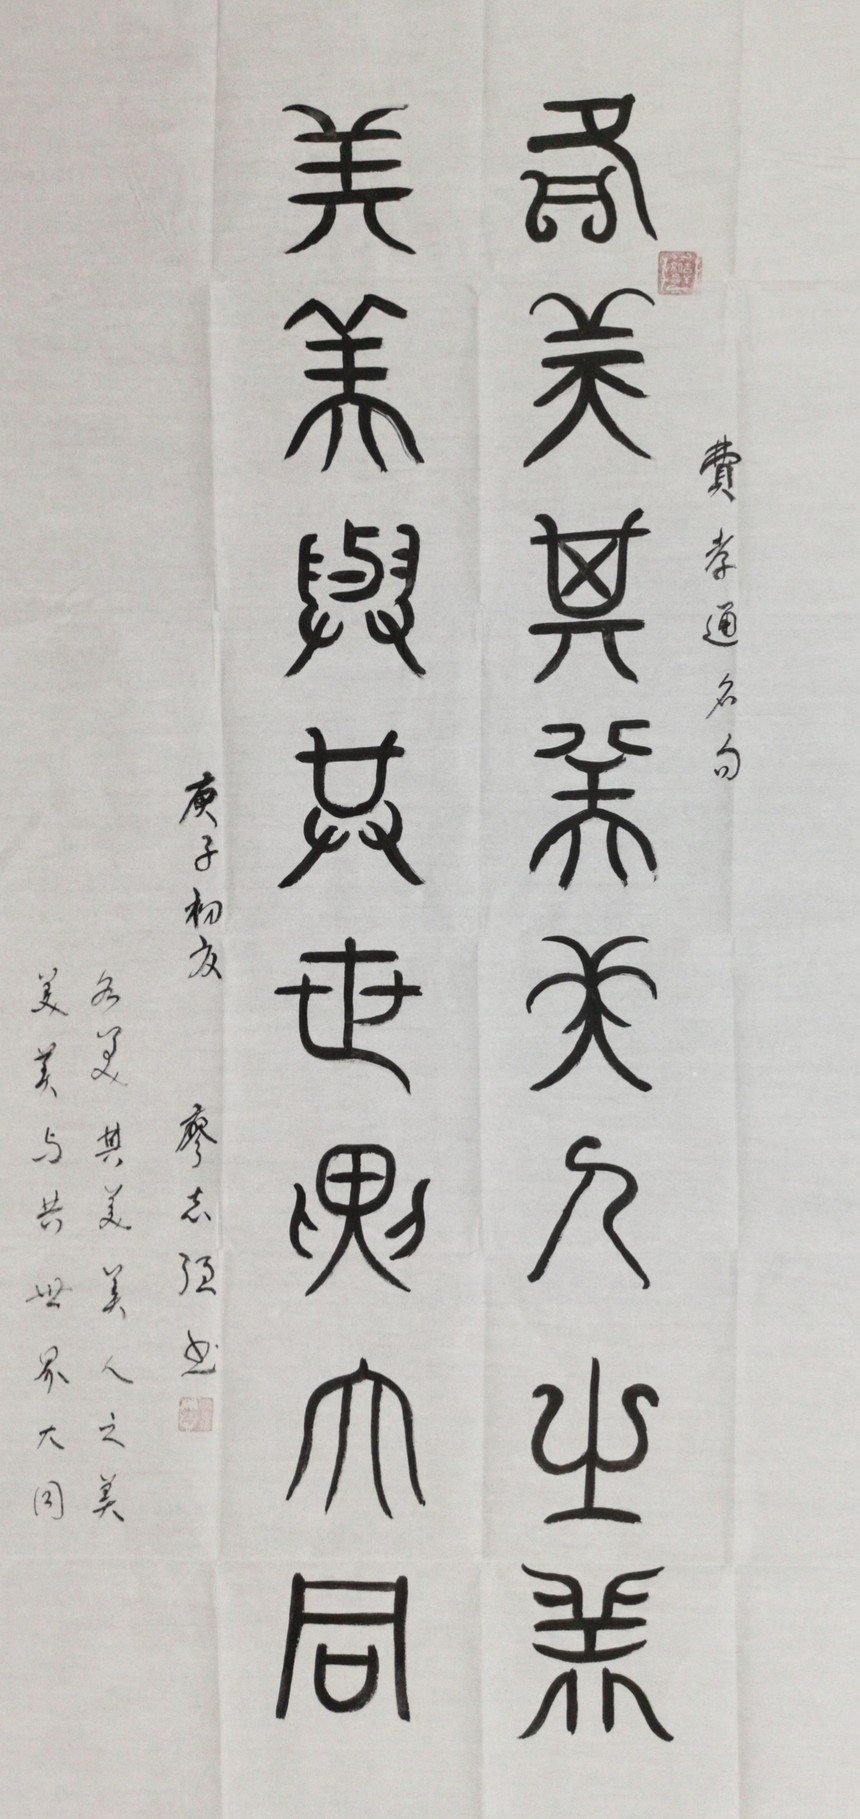 費孝通名句
各美其美美人之美
美美與共世界大同
庚子初夏 廖志強书
各美其美美人之美
美美与共世界大同